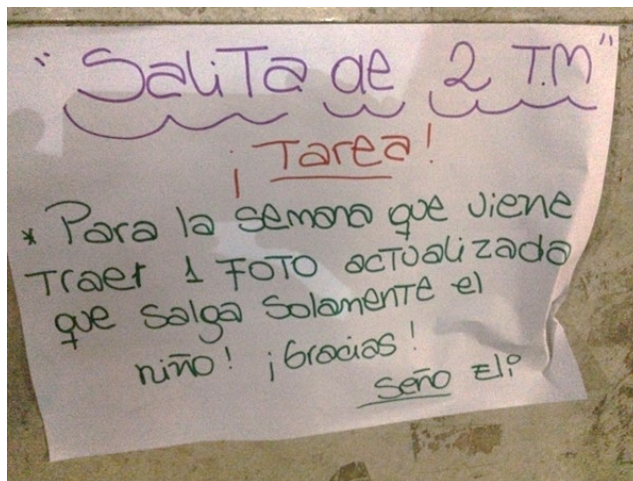 "Salita de 2 T.M"
¡Tarea!
* Para la semana que viene
traer 1 foto actualizada
que salga solamente el
niño! ¡Gracias!
Seño Eli